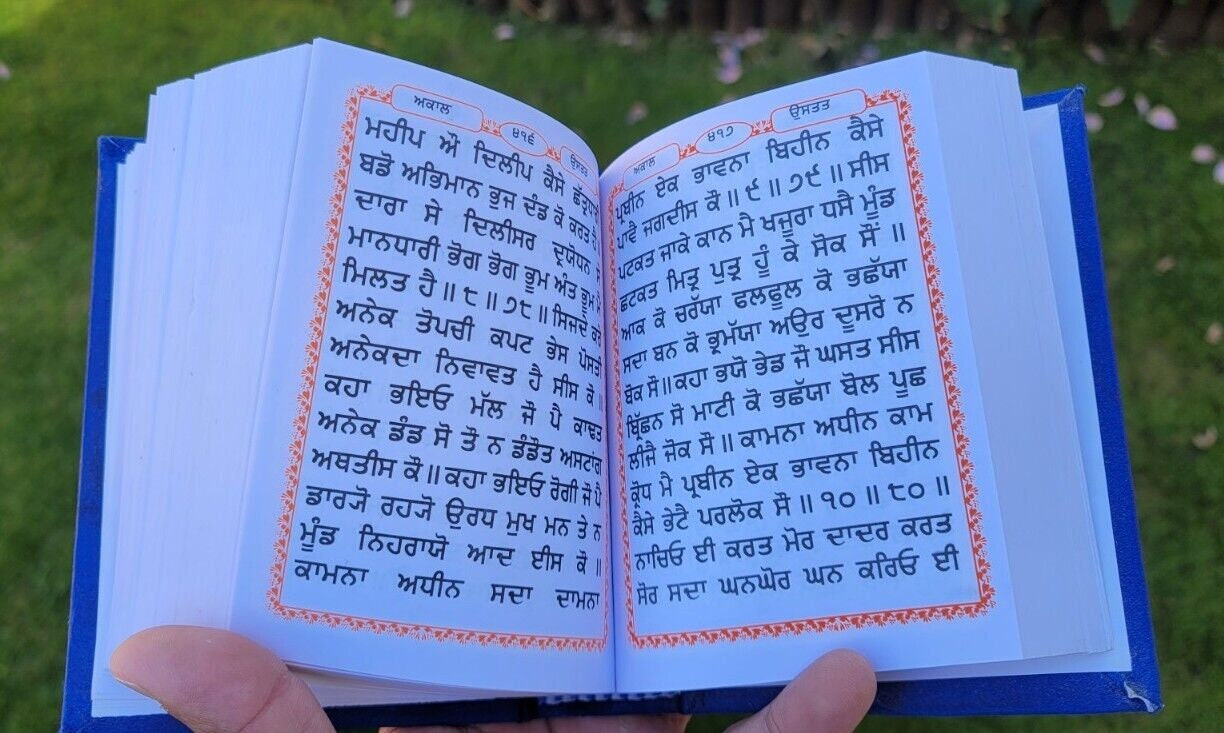 ਅਕਾਲ
੪੧੬
ਉਸਤਤ
ਮਹੀਪ ਔ ਦਿਲੀਪ ਕੈਸੇ
ਬਡੋ ਅਭਿਮਾਨ ਭੁਜ ਦੰਡ ਕੋ ਕਰਤ
ਦਾਰਾ ਸੇ ਦਿਲੀਸਰ ਦ੍ਰਯੋਧਨ
ਮਾਨਧਾਰੀ ਭੋਗ ਭੋਗ ਭੂਮ ਅੰਤ ਭੂਮ
ਮਿਲਤ ਹੈ॥੮॥੭੮॥ਸਿਜਦੇ
ਅਨੇਕ ਤੋਪਚੀ ਕਪਟ ਭੇਸ ਪੋਸਤੀ
ਅਨੇਕਦਾ ਨਿਵਾਵਤ ਹੈ ਸੀਸ ਕੋ॥
ਕਹਾ ਭਇਓ ਮੱਲ ਜੌ ਪੈ ਕਾਢਤ
ਅਨੇਕ ਡੰਡ ਸੋ ਤੌ ਨ ਡੰਡੌਤ ਅਸਟਾਂਗ
ਅਥਤੀਸ ਕੌ॥ਕਹਾ ਭਇਓ ਰੋਗੀ ਜੌ ਪੈ
ਡਾਰਯੋ ਰਹਯੋ ਉਰਧ ਮੁਖ ਮਨ ਤੇ ਨ
ਮੂੰਡ ਨਿਹਰਾਯੋ ਆਦ ਈਸ ਕੋ॥
ਕਾਮਨਾ ਅਧੀਨ ਸਦਾ ਦਾਮਨਾ
ਅਕਾਲ
੪੧੭
ਉਸਤਤ
ਪ੍ਰਬੀਨ ਏਕ ਭਾਵਨਾ ਬਿਹੀਨ ਕੈਸੇ
ਪਾਵੈ ਜਗਦੀਸ ਕੌ॥੯॥੭੯॥ਸੀਸ
ਪਟਕਤ ਜਾਕੇ ਕਾਨ ਮੈ ਖਜੂਰਾ ਧਸੈ ਮੂੰਡ
ਛਟਕਤ ਮਿਤ੍ਰ ਪੁਤ੍ਰ ਹੂੰ ਕੇ ਸੋਕ ਸੌਂ॥
ਆਕ ਕੋ ਚਰੱਯਾ ਫਲਫੂਲ ਕੋ ਭਛੱਯਾ
ਸਦਾ ਬਨ ਕੋ ਭ੍ਰਮੱਯਾ ਅਉਰ ਦੂਸਰੋ ਨ
ਬੋਕ ਸੌ॥ਕਹਾ ਭਯੋ ਭੇਡ ਜੌ ਘਸਤ ਸੀਸ
ਬ੍ਰਿੱਛਨ ਸੋ ਮਾਟੀ ਕੋ ਭਛੱਯਾ ਬੋਲ ਪੂਛ
ਲੀਜੈ ਜੋਕ ਸੌ॥ਕਾਮਨਾ ਅਧੀਨ ਕਾਮ
ਕ੍ਰੋਧ ਮੈ ਪ੍ਰਬੀਨ ਏਕ ਭਾਵਨਾ ਬਿਹੀਨ
ਕੈਸੇ ਭੇਟੈ ਪਰਲੋਕ ਸੌ॥੧੦॥੮੦॥
ਨਾਚਿਓ ਈ ਕਰਤ ਮੋਰ ਦਾਦਰ ਕਰਤ
ਸੋਰ ਸਦਾ ਘਨਘੋਰ ਘਨ ਕਰਿਓ ਈ